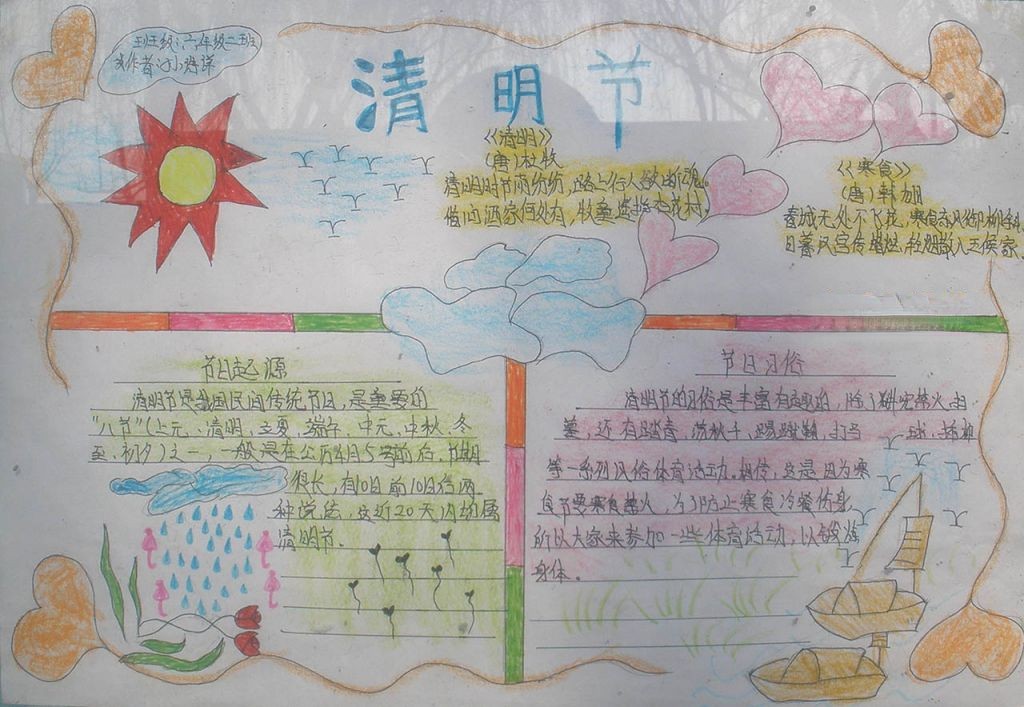 班级:六年级二班
清明节
《清明》
(唐)杜牧
清明时节雨纷纷,路上行人欲断魂。
借问酒家何处有,牧童遥指杏花村。
《寒食》
(唐)韩翃
春城无处不飞花,寒食东风御柳斜
日暮汉宫传蜡烛,轻烟散入五侯家
节日起源
清明节是我国民间传统节日,是重要的
"八节"(上元、清明、立夏、端午、中元、中秋、冬
至、初夕)之一,一般是在公历4月5号前后,节期
很长,有10日前10日后两
种说法,这近20天内均属
清明节.
节日习俗
清明节的习俗是丰富有趣的,除了讲究禁火、扫
墓,还有踏青、荡秋千、踢蹴鞠、打马球、插柳
等一系列风俗体育活动.相传,这是因为寒
食节要寒食禁火,为了防止寒食冷餐伤身,
所以大家来参加一些体育活动,以锻炼
身体。